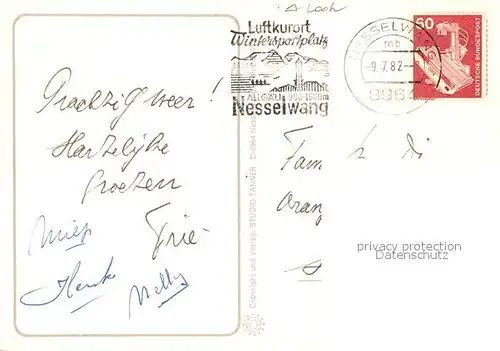 A Loch
Luftkurort
Wintersportplatz
ALLGÄU 900-1600m
Nesselwang
NESSELWANG
mb
-9.7.82-
8964
60
DEUTSCHE BUNDESPOST
Prachtig weer!
Hartelijke
groeten
Miep
Trie
Henk
Nelly
Fam
Oran
Copyright und Verlag: STUDIO TANNER D-8964 Nes
privacy protection
watermark